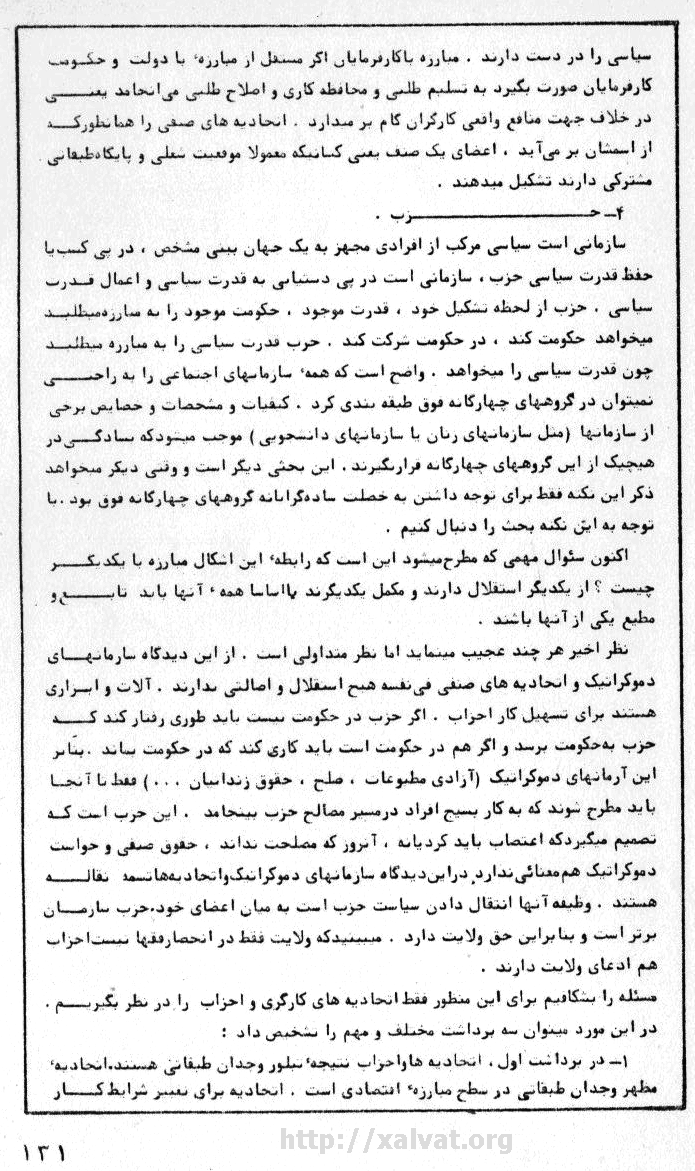 سیاسی را در دست دارند . مبارزه باکارفرمایان اگر مستقل از مبارزهٔ با دولت و حکومت
کارفرمایان صورت بگیرد به تسلیم طلبی و محافظه کاری و اصلاح طلبی می‌انجامد یعنـــی
در خلاف جهت منافع واقعی کارگران گام بر میدارد . اتحادیه های صنفی را همانطورکــه
از اسمشان بر می‌آید ، اعضای یک صنف یعنی کسانیکه معمولا موقعیت شغلی و پایگاه‌طبقاتی
مشترکی دارند تشکیل میدهند .
۴ــ حـــــــــــــــــــــزب .
سازمانی است سیاسی مرکب از افرادی مجهز به یک جهان بینی مشخص ، در پی کسب‌یا
حفظ قدرت سیاسی حزب ، سازمانی است در پی دستیابی به قدرت سیاسی و اعمال قــدرت
سیاسی . حزب از لحظه تشکیل خود ، قدرت موجود ، حکومت موجود را به مبارزه‌میطلبـد
میخواهد حکومت کند ، در حکومت شرکت کند . حزب قدرت سیاسی را به مبارزه میطلبـد
چون قدرت سیاسی را میخواهد . واضح است که همهٔ سازمانهای اجتماعی را به راحتـــی
نمیتوان در گروههای چهارگانه فوق طبقه بندی کرد . کیفیات و مشخصات و خصایص برخی
از سازمانها (مثل سازمانهای زنان یا سازمانهای دانشجویی) موجب میشودکه بسادگـــی در
هیچیک از این گروههای چهارگانه قرارنگیرند . این بحثی دیگر است و وقتی دیگر میخواهد
ذکر این نکته فقط برای توجه داشتن به خصلت ساده‌گرایانه گروههای چهارگانه فوق بود .با
توجه به این نکته بحث را دنبال کنیم .
اکنون سئوال مهمی که مطرح‌میشود این است که رابطهٔ این اشکال مبارزه با یکدیگـــر
چیست ؟ از یکدیگر استقلال دارند و مکمل یکدیگرند یااساسا همهٔ آنها باید تابـــع و
مطیع یکی از آنها باشند .
نظر اخیر هر چند عجیب مینماید اما نظر متداولی است . از این دیدگاه سازمانهـــای
دموکراتیک و اتحادیه های صنفی فی‌نفسه هیچ استقلال و اصالتی ندارند . آلات و ابــزاری
هستند برای تسهیل کار احزاب . اگر حزب در حکومت نیست باید طوری رفتار کند کـــه
حزب به‌حکومت برسد و اگر هم در حکومت است باید کاری کند که در حکومت بماند .بنابر
این آرمانهای دموکراتیک (آزادی مطبوعات ، صلح ، حقوق زندانیان ...) فقط تا آنجـا
باید مطرح شوند که به کار بسیج افراد درمسیر مصالح حزب بینجامد . این حزب است کـه
تصمیم میگیردکه اعتصاب باید کردیانه ، آنروز که مصلحت نداند ، حقوق صنفی و خواست
دموکراتیک هم‌معنائی‌ندارد.دراین‌دیدگاه سازمانهای دموکراتیک‌واتحادیه‌هاتسمه نقالـــه
هستند . وظیفه آنها انتقال دادن سیاست حزب است به میان اعضای خود.حزب سازمـــان
برتر است و بنابراین حق ولایت دارد . میبینیدکه ولایت فقط در انحصارفقها نیست‌احزاب
هم ادعای ولایت دارند .
مسئله را بشکافیم برای این منظور فقط اتحادیه های کارگری و احزاب را در نظر بگیریـــم .
در این مورد میتوان سه برداشت مختلف و مهم را تشخیص داد :
۱ــ در برداشت اول ، اتحادیه هاواحزاب نتیجهٔ تبلور وجدان طبقاتی هستند.اتحادیهٔ
مظهر وجدان طبقاتی در سطح مبارزهٔ اقتصادی است . اتحادیه برای تغییر شرایط کـــار
۱۳۱
http://xalvat.org